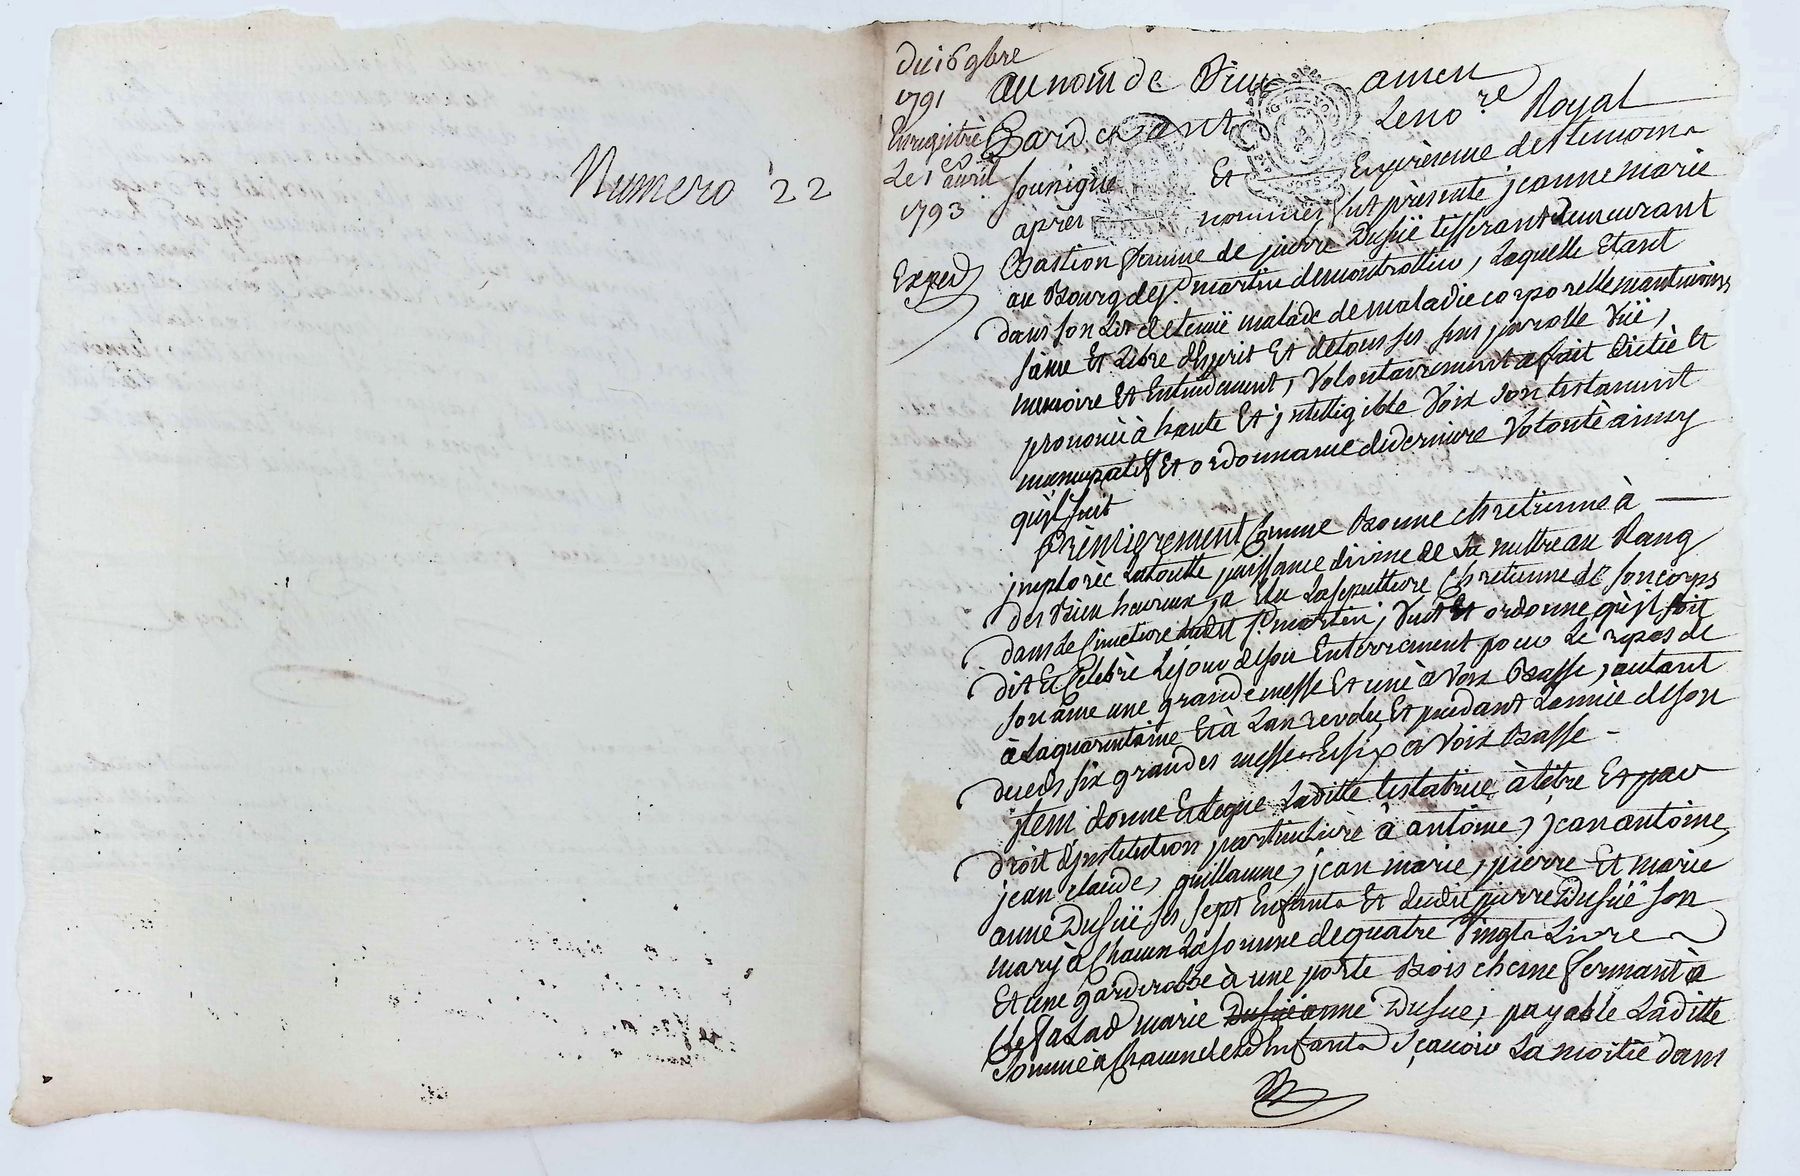 Numero 22
Du 16 9bre
1791
Enregistré
Le 1er avril
1793
Exped
au nom de Dieu amen
Pardevant Le no.re Royal
sousigné Et En présence des temoins
après nommés fut présente jeanne marie
Bastion femme de pierre Dusuë tisserant demeurant
au Bourg de St martin de montrottier, Laquelle Etant
dans son Lit detenuë malade de maladie corporelle maintmoins
saine Et Libre d'Esprit Et de tous ses sens parolle Vuë,
memoire Et Entendement, Volontairement a fait Dictée Et
prononcé à haute Et jntelligible Voix son testament
nuncupatif Et ordonnance de derniere Volonté ainsy
qu'jl suit
Premierement Comme Bonne chretienne à
jmploréc La toutte puissance divine de La mettre au Rang
des Bien heureux, ja Elu La sepulture Chretienne de son corps
dans Le Cimetiere dudit St martin, Veut Et ordonne qu'jl soit
dit Et Celebré Le jour de son Enterrement pour Le repos de
son ame une grande messe Et une à Voix Basse, autant
à La quarentaine Et à L'an revolu, Et pendant L'année de son
deceds six grandes messes Et six à Voix Basse -
jtem donne Et Legue Laditte testatrice à titre Et par
droit d'jnstitution particuliere à antoine, jean antoine,
jean claude, guillaume, jean marie, pierre Et marie
anne Dusuë ses sept Enfants Et dudit pierre Dusuë son
mary à Chacun La somme de quatre Vingts Livres
Et une garderobbe à une porte Bois chene fermant à
Clef à Lad marie Dusuë anne Dusuë, payable Laditte
somme à Chacun desd Enfants sçavoir La moitié dans